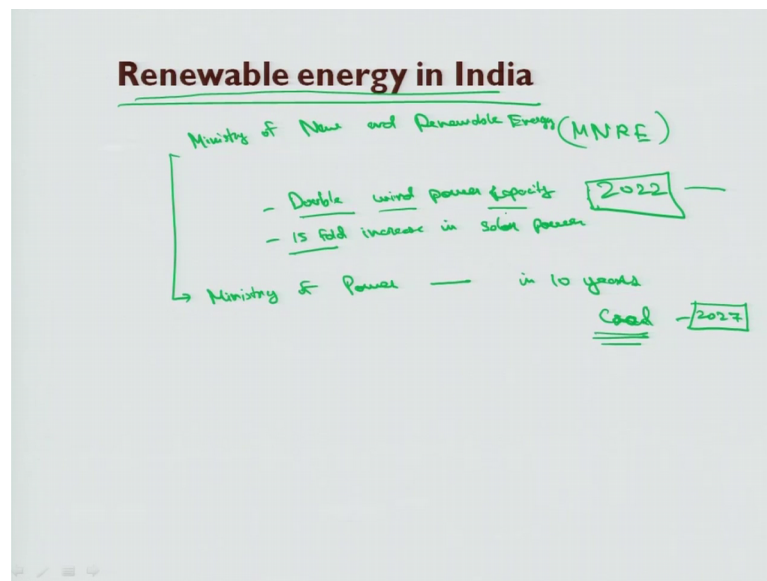 Renewable energy in India
Ministry of New and Renewable Energy (MNRE)
- Double wind power capacity 2022 —
- 15 fold increase in solar power
→ Ministry of Power — in 10 years
Coal - 2027